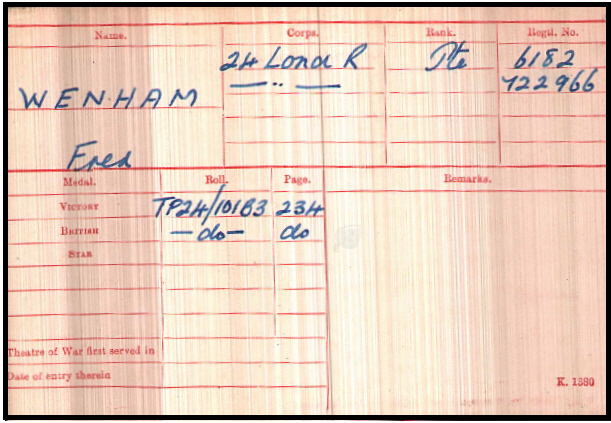 Name. Corps. Rank. Regtl. No.
24 Lond R Pte 6182
— ·· — 722966
WENHAM
Fred
Medal. Roll. Page. Remarks.
VICTORY TP24/101B3 234
BRITISH —do— do
STAR
Theatre of War first served in
Date of entry therein
K. 1380